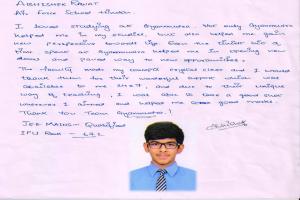 ABHISHEK RAWAT
Air Force School
I loved studying at Gyanmudra. Not only Gyanmudra
helped me in my studies, but also helped me gain
new perspective towards life. Even the little bit of
time spent at Gyanmudra helped me in opening new
doors and paved way to new opportunities.
The faculty made my concept crystal clear and I would
thank them for their wonderful support which was
available to me 24x7, and due to their unique
way of teaching, I was able to take a good shot
wherever I aimed and helped me score good marks.
Thank You Team Gyanmudra!
JEE MAINS - Qualified
IPU Rank - 672